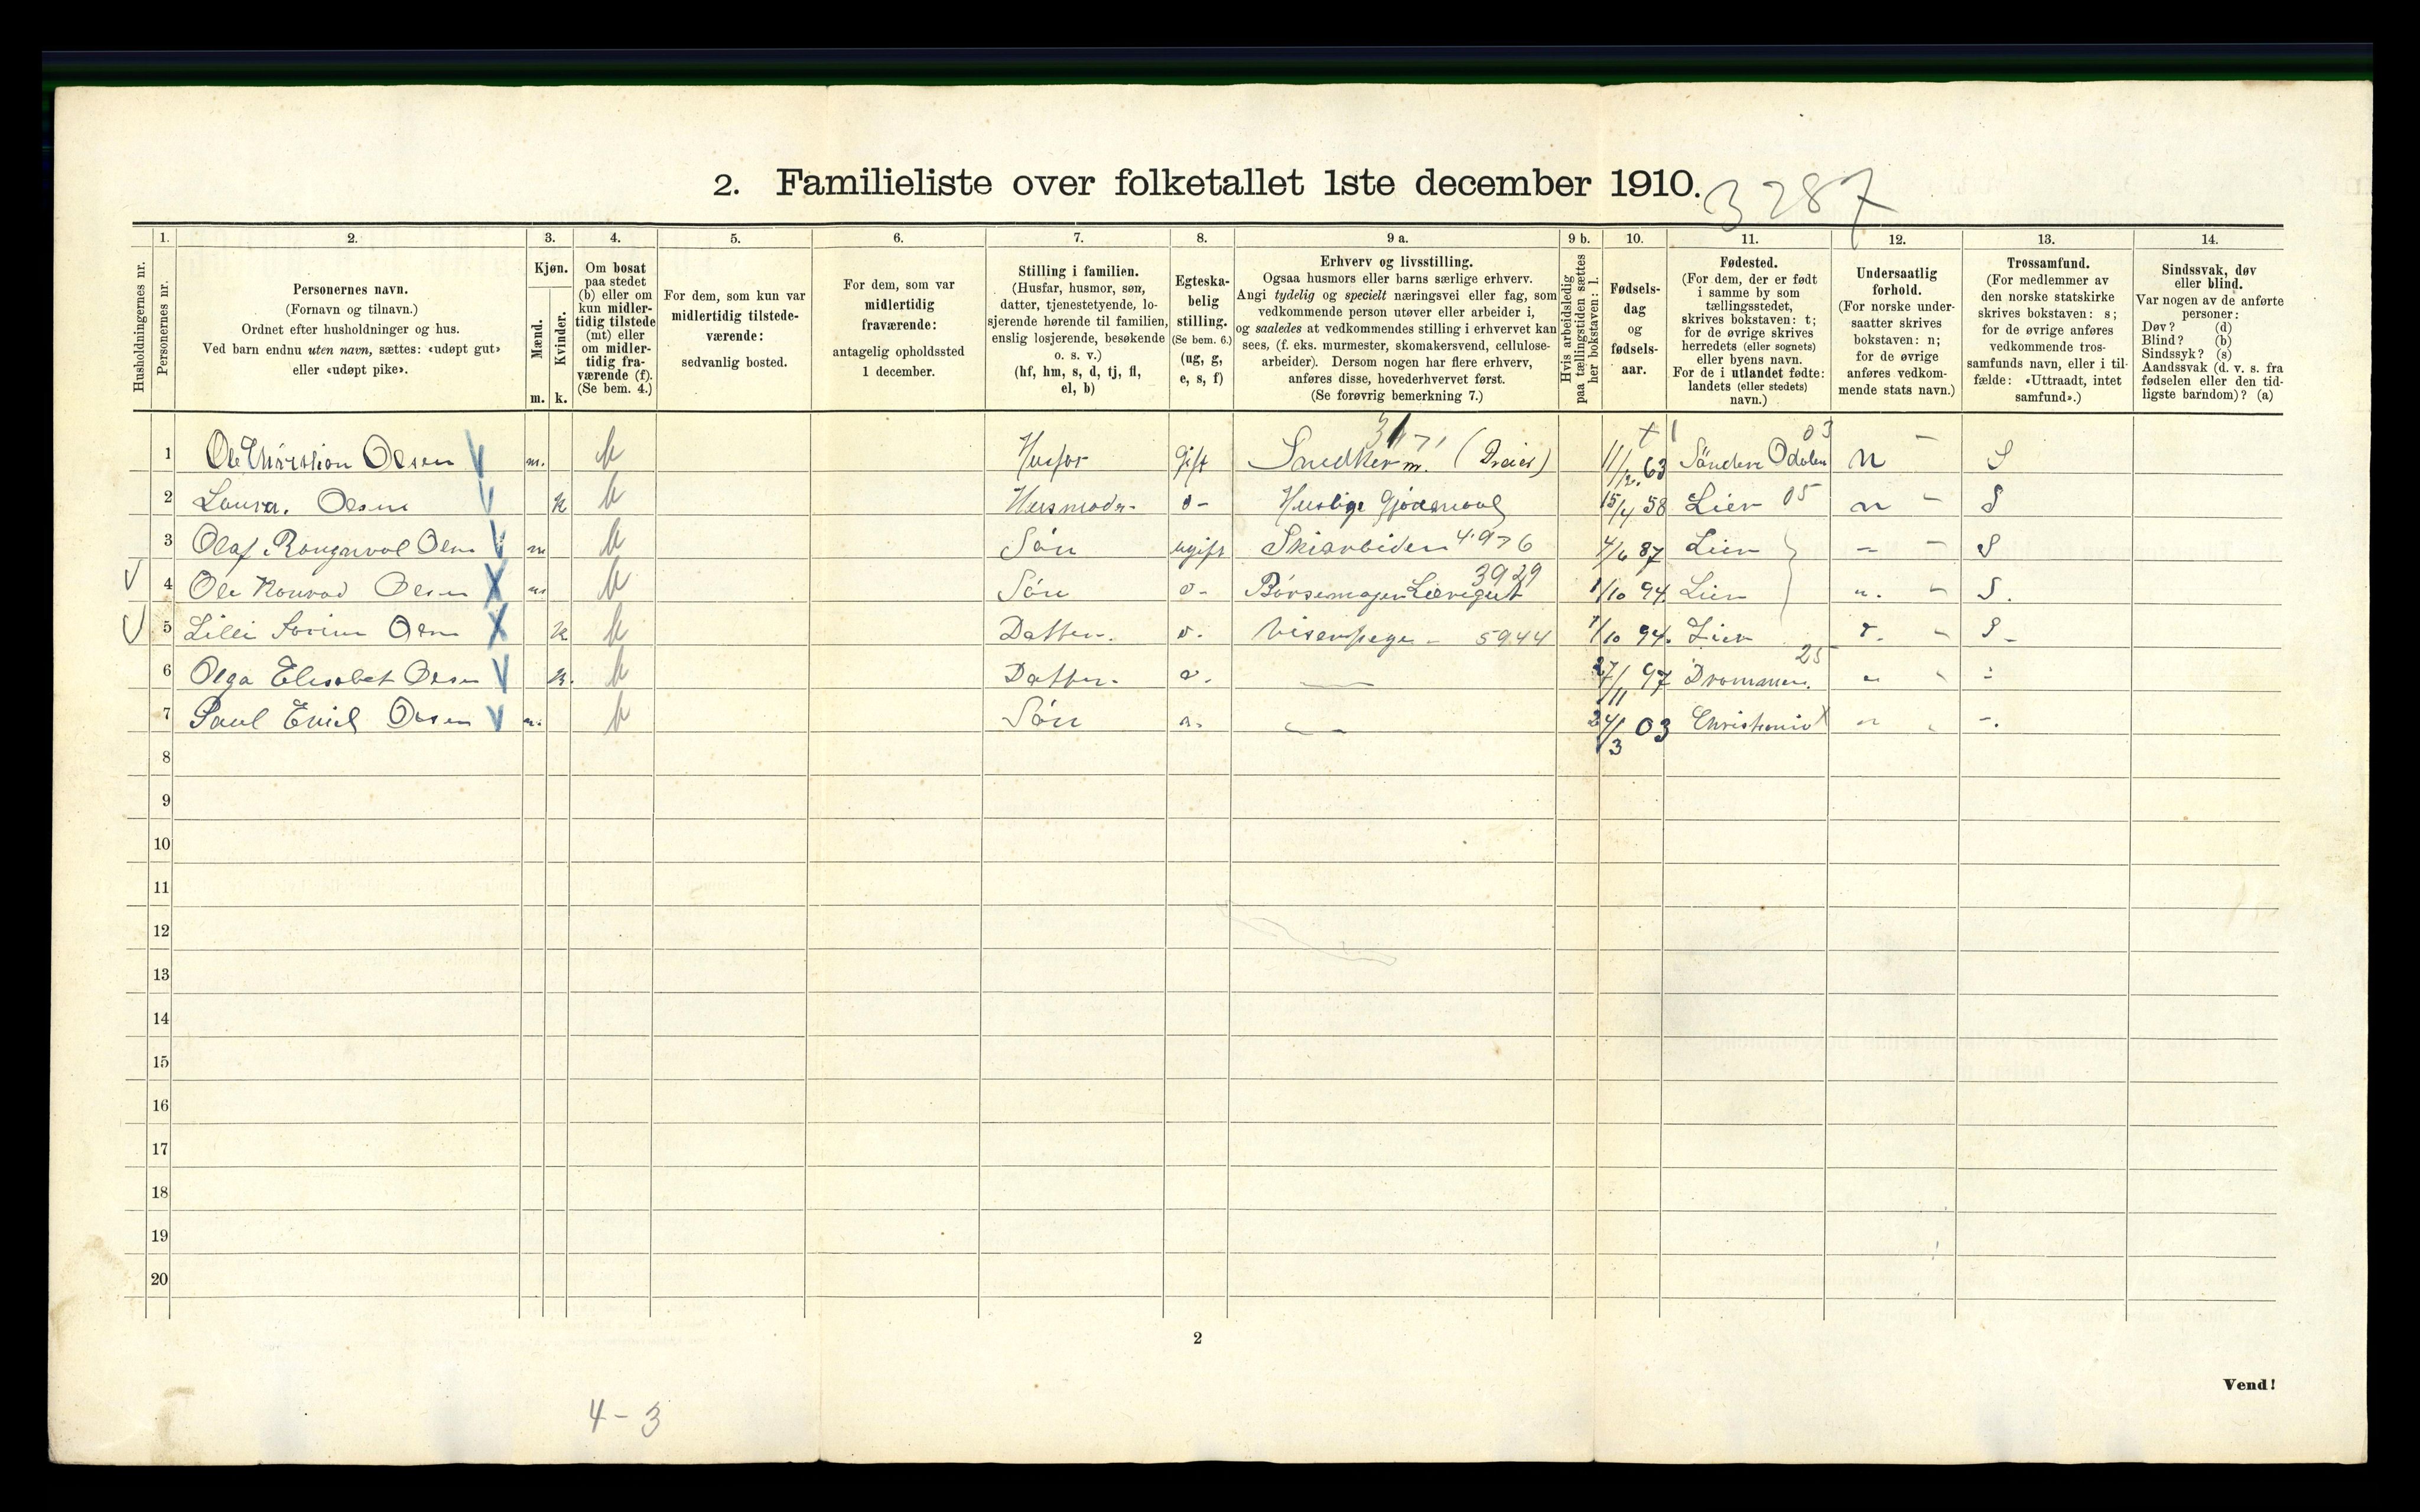 2. Familieliste over folketallet 1ste december 1910.
3287
1. 2. 3. 4. 5. 6. 7. 8. 9 a. 9 b. 10. 11. 12. 13. 14.
Husholdningernes nr.
Personernes nr.
Personernes navn.
(Fornavn og tilnavn.)
Ordnet efter husholdninger og hus.
Ved barn endnu uten navn, sættes: «udøpt gut»
eller «udøpt pike».
Kjøn.
Mænd.
Kvinder.
m. k.
Om bosat
paa stedet
(b) eller om
kun midler-
tidig tilstede
(mt) eller
om midler-
tidig fra-
værende (f).
(Se bem. 4.)
For dem, som kun var
midlertidig tilstede-
værende:
sedvanlig bosted.
For dem, som var
midlertidig
fraværende:
antagelig opholdssted
1 december.
Stilling i familien.
(Husfar, husmor, søn,
datter, tjenestetyende, lo-
sjerende hørende til familien,
enslig losjerende, besøkende
o. s. v.)
(hf, hm, s, d, tj, fl,
el, b)
Egteska-
belig
stilling.
(Se bem. 6.)
(ug, g,
e, s, f)
Erhverv og livsstilling.
Ogsaa husmors eller barns særlige erhverv.
Angi tydelig og specielt næringsvei eller fag, som
vedkommende person utøver eller arbeider i,
og saaledes at vedkommendes stilling i erhvervet kan
sees, (f. eks. murmester, skomakersvend, cellulose-
arbeider). Dersom nogen har flere erhverv,
anføres disse, hovederhvervet først.
(Se forøvrig bemerkning 7.)
Hvis arbeidsledig
paa tællingstiden sættes
her bokstaven: l.
Fødsels-
dag
og
fødsels-
aar.
Fødested.
(For dem, der er født
i samme by som
tællingsstedet,
skrives bokstaven: t;
for de øvrige skrives
herredets (eller sognets)
eller byens navn.
For de i utlandet fødte:
landets (eller stedets)
navn.)
Undersaatlig
forhold.
(For norske under-
saatter skrives
bokstaven: n;
for de øvrige
anføres vedkom-
mende stats navn.)
Trossamfund.
(For medlemmer av
den norske statskirke
skrives bokstaven: s;
for de øvrige anføres
vedkommende tros-
samfunds navn, eller i til-
fælde: «Uttraadt, intet
samfund».)
Sindssvak, døv
eller blind.
Var nogen av de anførte
personer:
Døv? (d)
Blind? (b)
Sindssyk? (s)
Aandssvak (d. v. s. fra
fødselen eller den tid-
ligste barndom)? (a)
1 Ole Christian Olsen V m. b Husfar Gift Snedker m. (Dreier) 11/2 63 Søndre Odalen 03 n - S
2 Laura. Olsen V k b Husmoder o- Huslige Gjøremaal 15/4 58 Lier 05 n - S
3 Olaf Rangnval Olsen V m b Søn ugift Skiarbeider 4976 4/6 87 Lier - - S
4 Ole Konrad Olsen X m b Søn o- Børsemager Læregut 3929 1/10 94 Lier ". - S.
5 Lilli Sorine Olsen X k b Datter. o. Viserpige - 5944 1/10 94. Lier - S-
6 Olga Elisabet Olsen V k. b Datter. o. — 27/11 97 Drammen. 25 "
7 Paul Emil Olsen V m. b Søn — 24/3 03 Christania "
8
9
10
11
12
13
14
15
16
17
18
19
20
2
Vend!
4-3